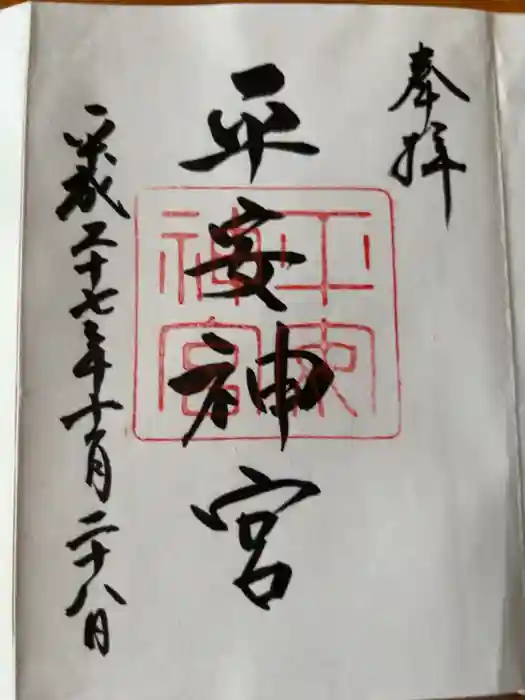 奉拝
平安神宮
平安神宮
平成二十七年十月二十八日